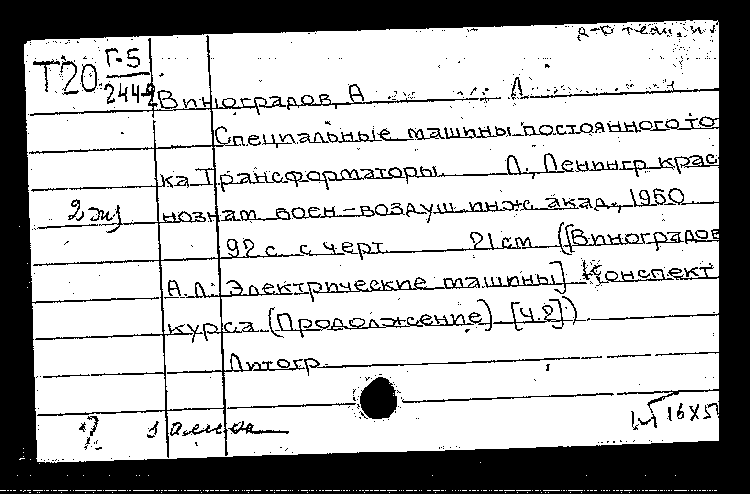 Т20 Г-5
2442
Виноградов, А Л
Специальные машины постоянного то
ка Трансформаторы. Л., Ленингр крас
2 экз нознам воен-воздуш инж акад., 1950
92 с. с черт 21 см ([Виноградов
А.Л.: Электрические машины] Конспект
курса (Продолжение) [Ч.2])
Литогр.